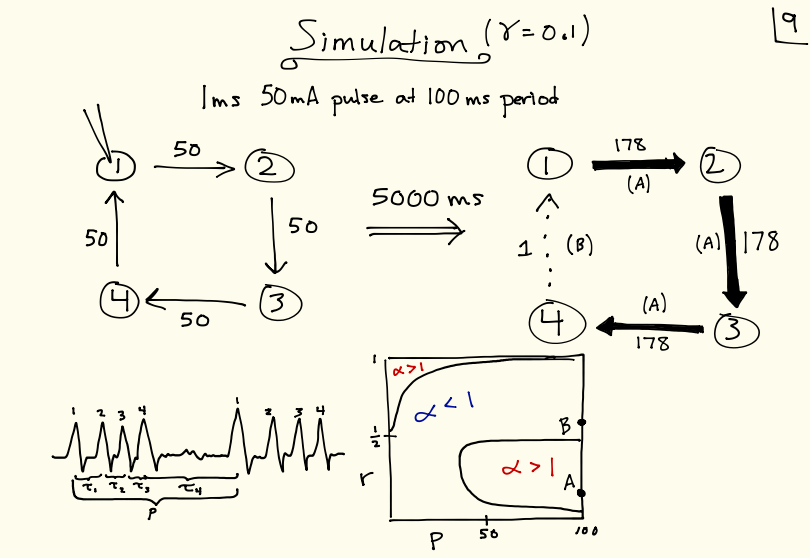 Simulation (r = 0.1)
9
1ms 50mA pulse at 100 ms period
1 50 2
50 50
4 50 3
5000 ms
1 178 (A) 2
1 (B) (A) 178
4 (A) 178 3
1 2 3 4 1 2 3 4
τ1 τ2 τ3 τ4
P
1
α>1
α<1
1/2
B
α>1
A
r
P 50 100